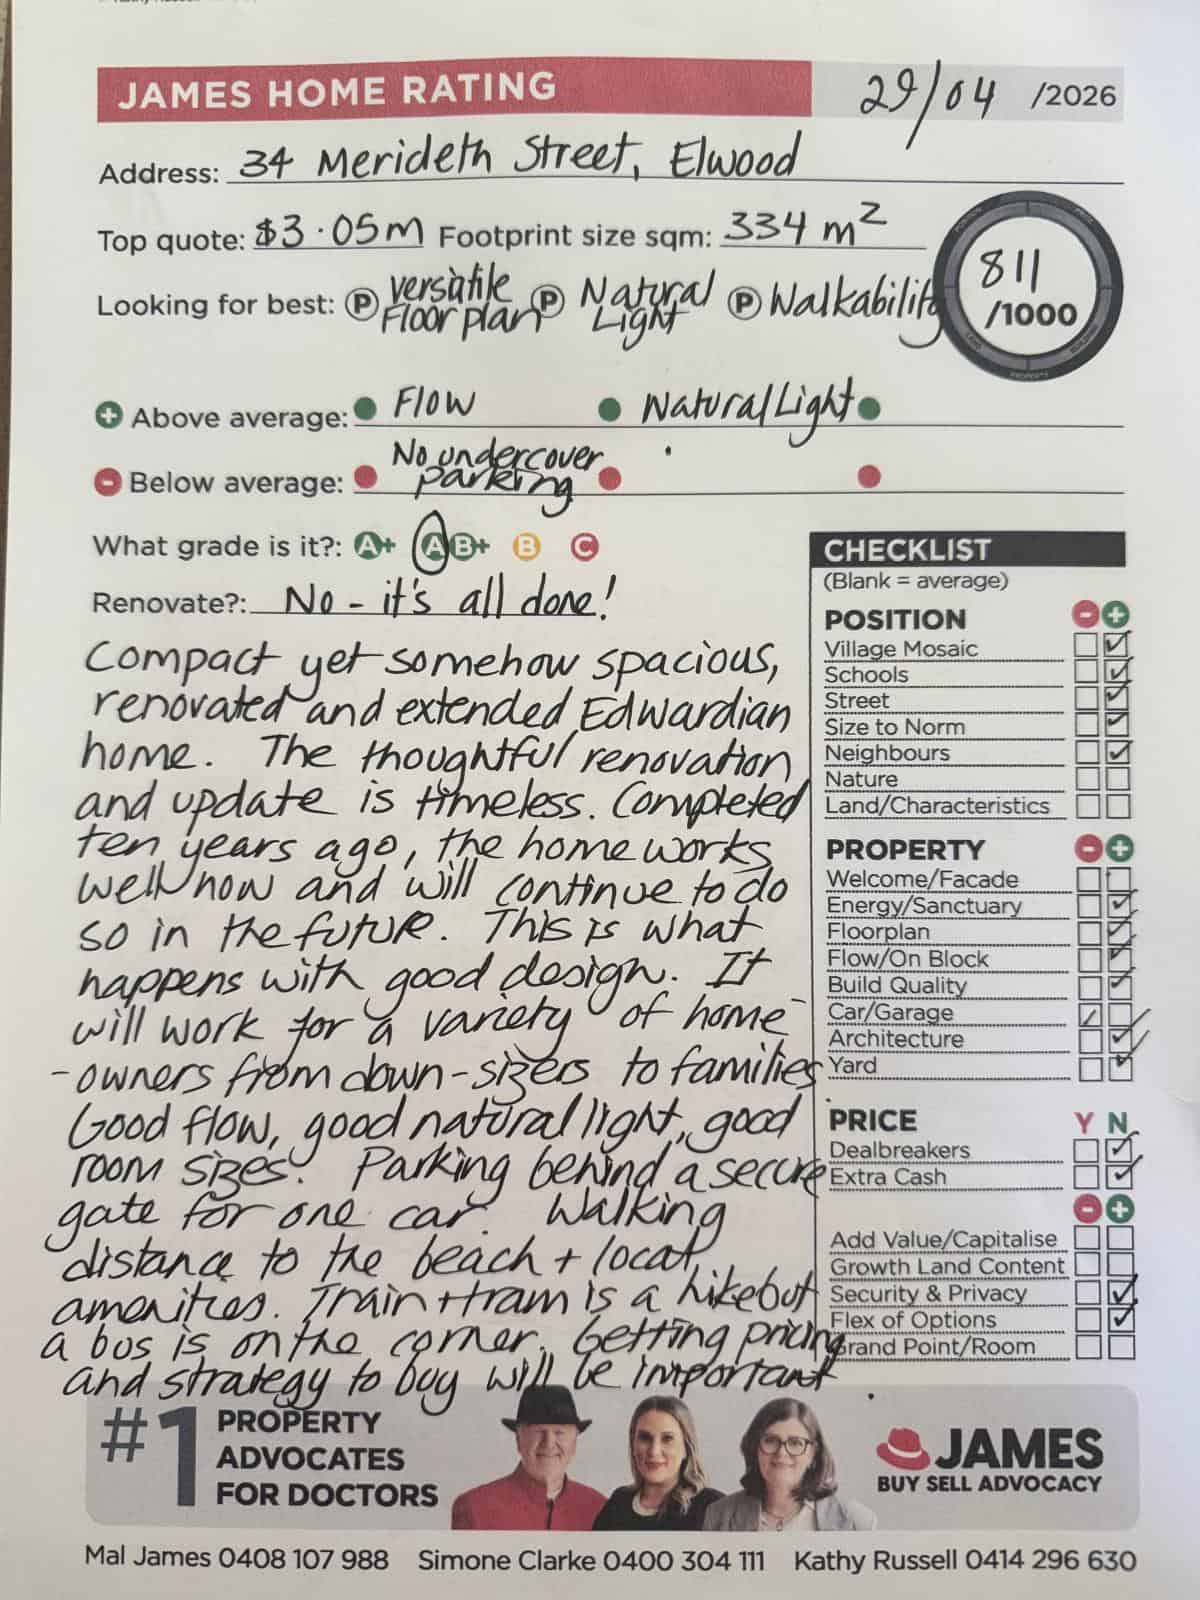 JAMES HOME RATING 29/04 /2026
Address: 34 Merideth Street, Elwood
Top quote: $3.05m Footprint size sqm: 334 m²
811
/1000
Looking for best: P versatile Floor plan P Natural Light P Walkability
+ Above average: Flow Natural Light
- Below average: No undercover parking
What grade is it?: A+ A B+ B C
Renovate?: No - it's all done!
Compact yet somehow spacious,
renovated and extended Edwardian
home. The thoughtful renovation
and update is timeless. Completed
ten years ago, the home works
well now and will continue to do
so in the future. This is what
happens with good design. It
will work for a variety of home-
-owners from down-sizers to families
Good flow, good natural light, good
room sizes. Parking behind a secure
gate for one car. Walking
distance to the beach + local
amenities. Train + tram is a hike but
a bus is on the corner. Getting pricing
and strategy to buy will be important.
CHECKLIST
(Blank = average)
POSITION - +
Village Mosaic
Schools
Street
Size to Norm
Neighbours
Nature
Land/Characteristics
PROPERTY - +
Welcome/Facade
Energy/Sanctuary
Floorplan
Flow/On Block
Build Quality
Car/Garage
Architecture
Yard
PRICE Y N
Dealbreakers
Extra Cash
- +
Add Value/Capitalise
Growth Land Content
Security & Privacy
Flex of Options
Grand Point/Room
#1 PROPERTY
ADVOCATES
FOR DOCTORS
JAMES
BUY SELL ADVOCACY
Mal James 0408 107 988 Simone Clarke 0400 304 111 Kathy Russell 0414 296 630